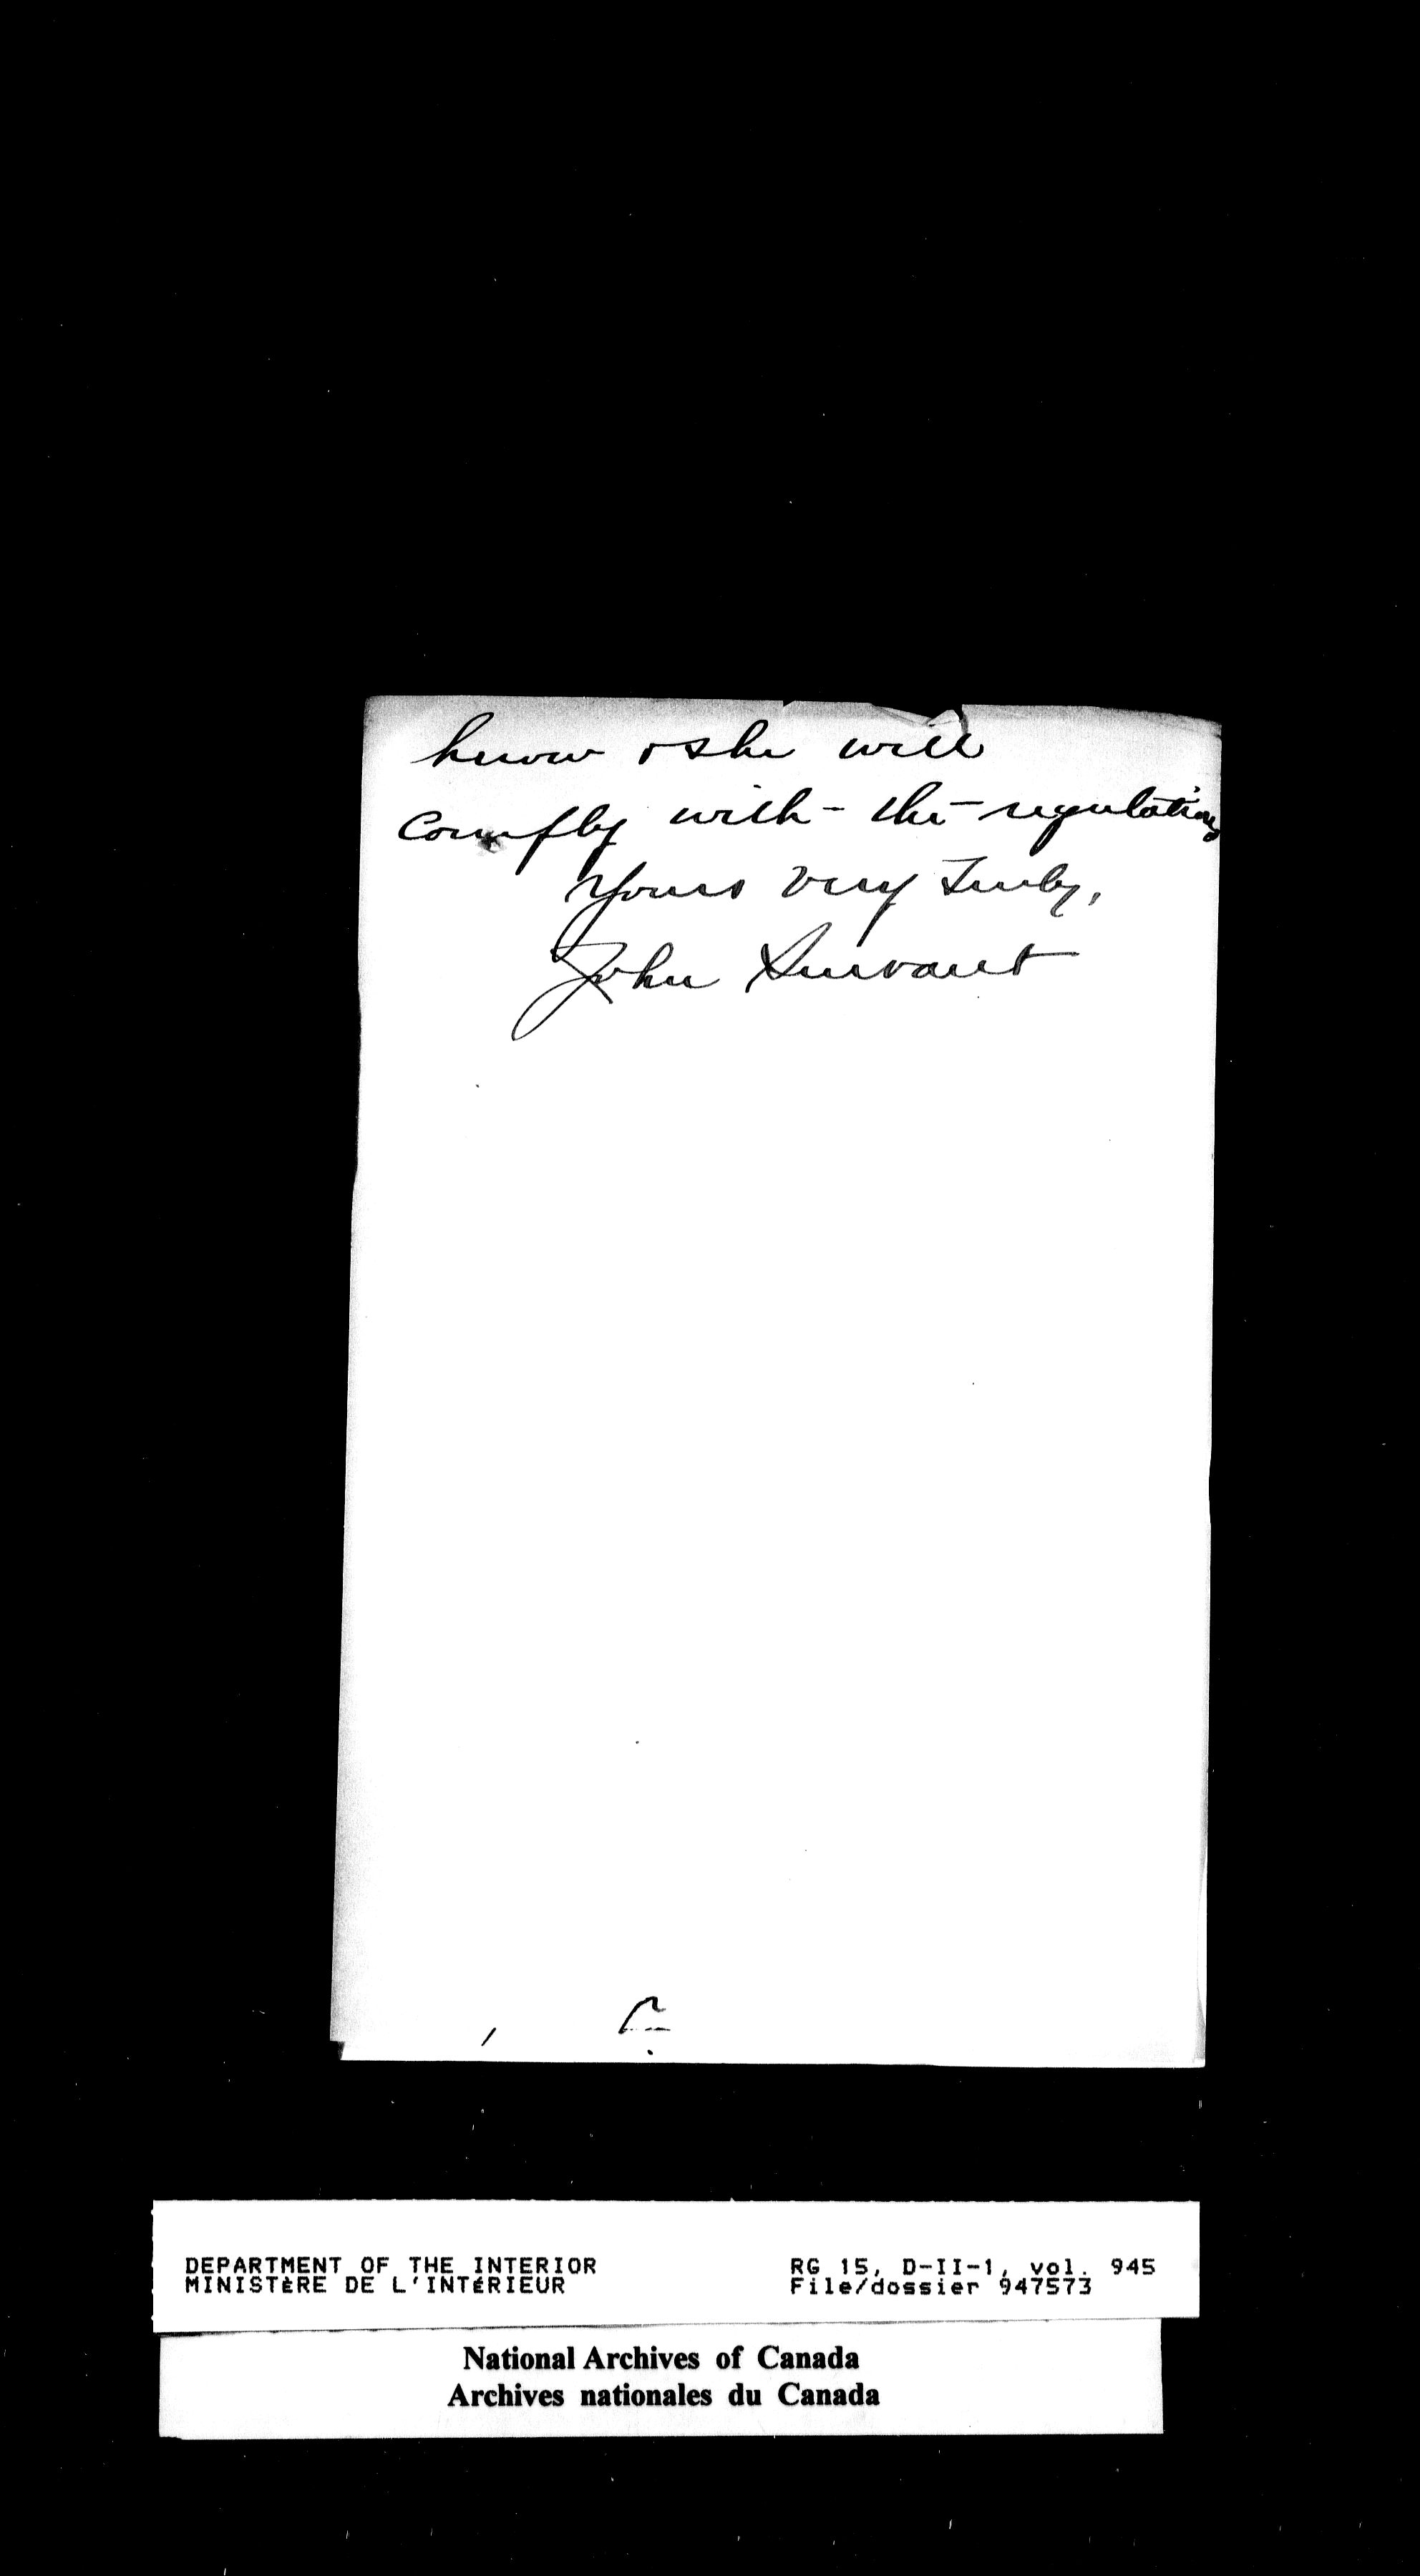 know & she will
comply with the regulations
Yours Very Truly,
John
DEPARTMENT OF THE INTERIOR
MINISTÈRE DE L'INTÉRIEUR
RG 15, D-II-1, vol. 945
File/dossier 947573
National Archives of Canada
Archives nationales du Canada